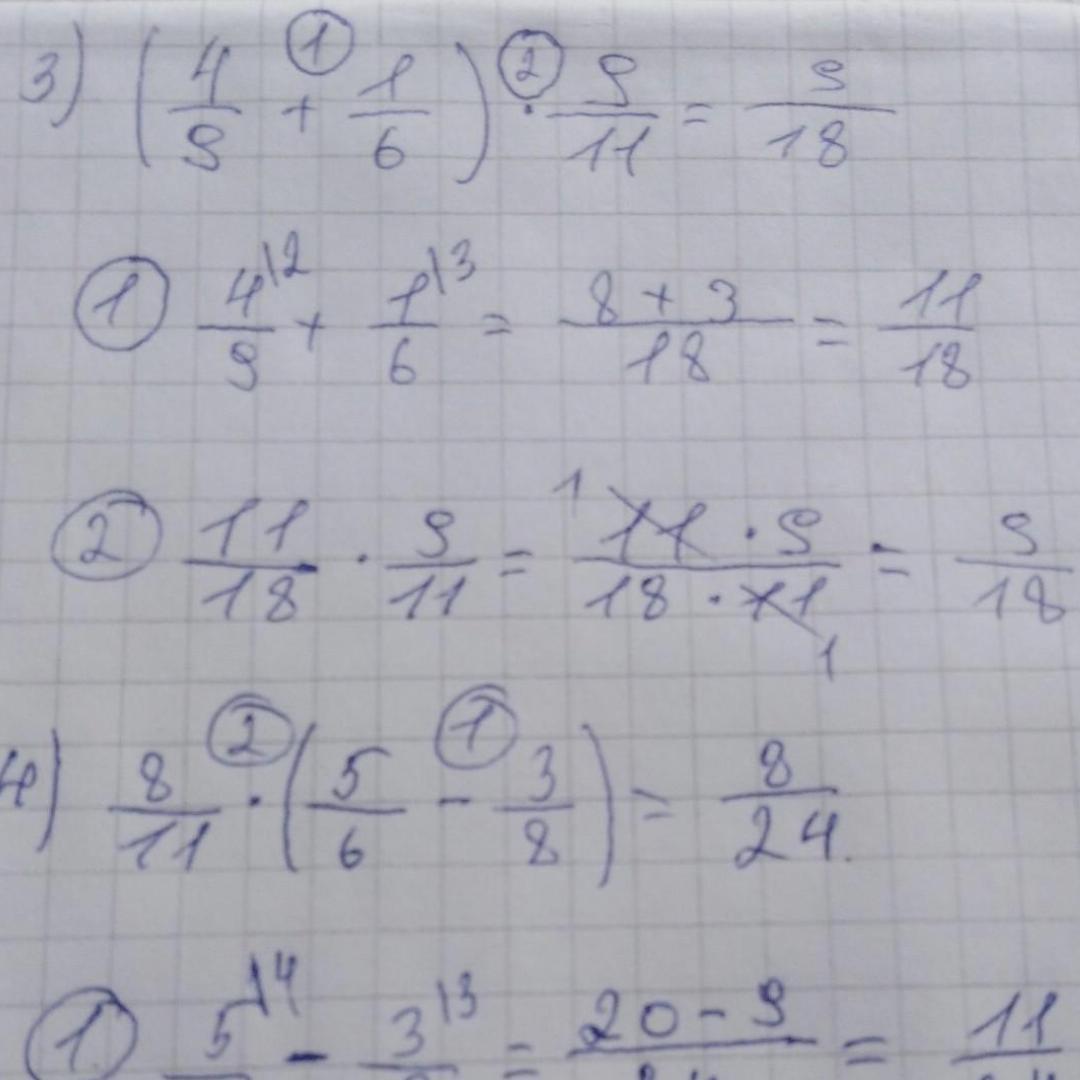 3) (4/9 + 1/6) · 9/11 = 9/18
① ②
① 4\2/9 + 1\3/6 = 8+3/18 = 11/18
② 11/18 · 9/11 = 11·9/18·11 = 9/18
1 1
4) 8/11 · (5/6 - 3/8) = 8/24.
② ①
① 5\4 - 3\3 = 20-9 = 11